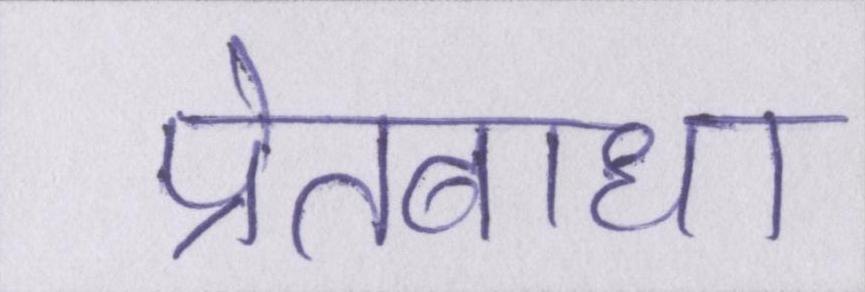 प्रेतबाधा